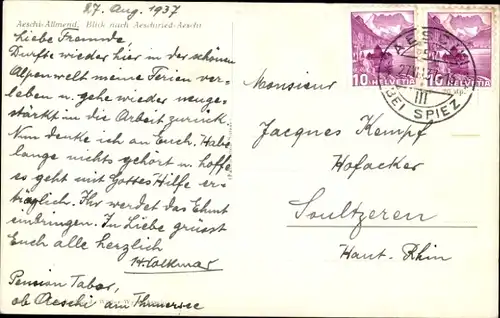 27. Aug. 1937
Aeschi-Allmend. Blick nach Aeschiried-Aeschi
Liebe Freunde
Durfte wieder hier in der schönen
Alpenwelt meine Ferien ver-
leben u. gehe wieder neuge-
stärkt in die Arbeit zurück.
Nun denke ich an Euch. Habe
lange nichts gehört u. hoffe
es geht mit Gottes Hilfe er-
träglich. Ihr werdet das Ehmt
einbringen. In Liebe grüsst
Euch alle herzlich
H. Volkmar
Pension Tabor,
ob Aeschi am Thunersee
10 HELVETIA
10 HELVETIA
AESCHI
BEI SPIEZ
III
Monsieur
Jacques Kempf
Hofacker
Soultzeren
Haut-Rhin